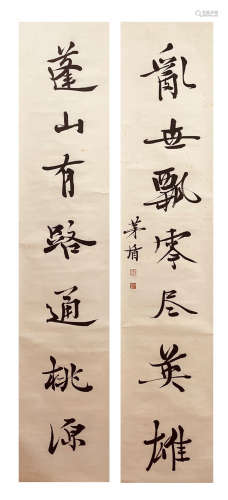 亂世飄零尽英雄
茅盾
蓬山有路通桃源